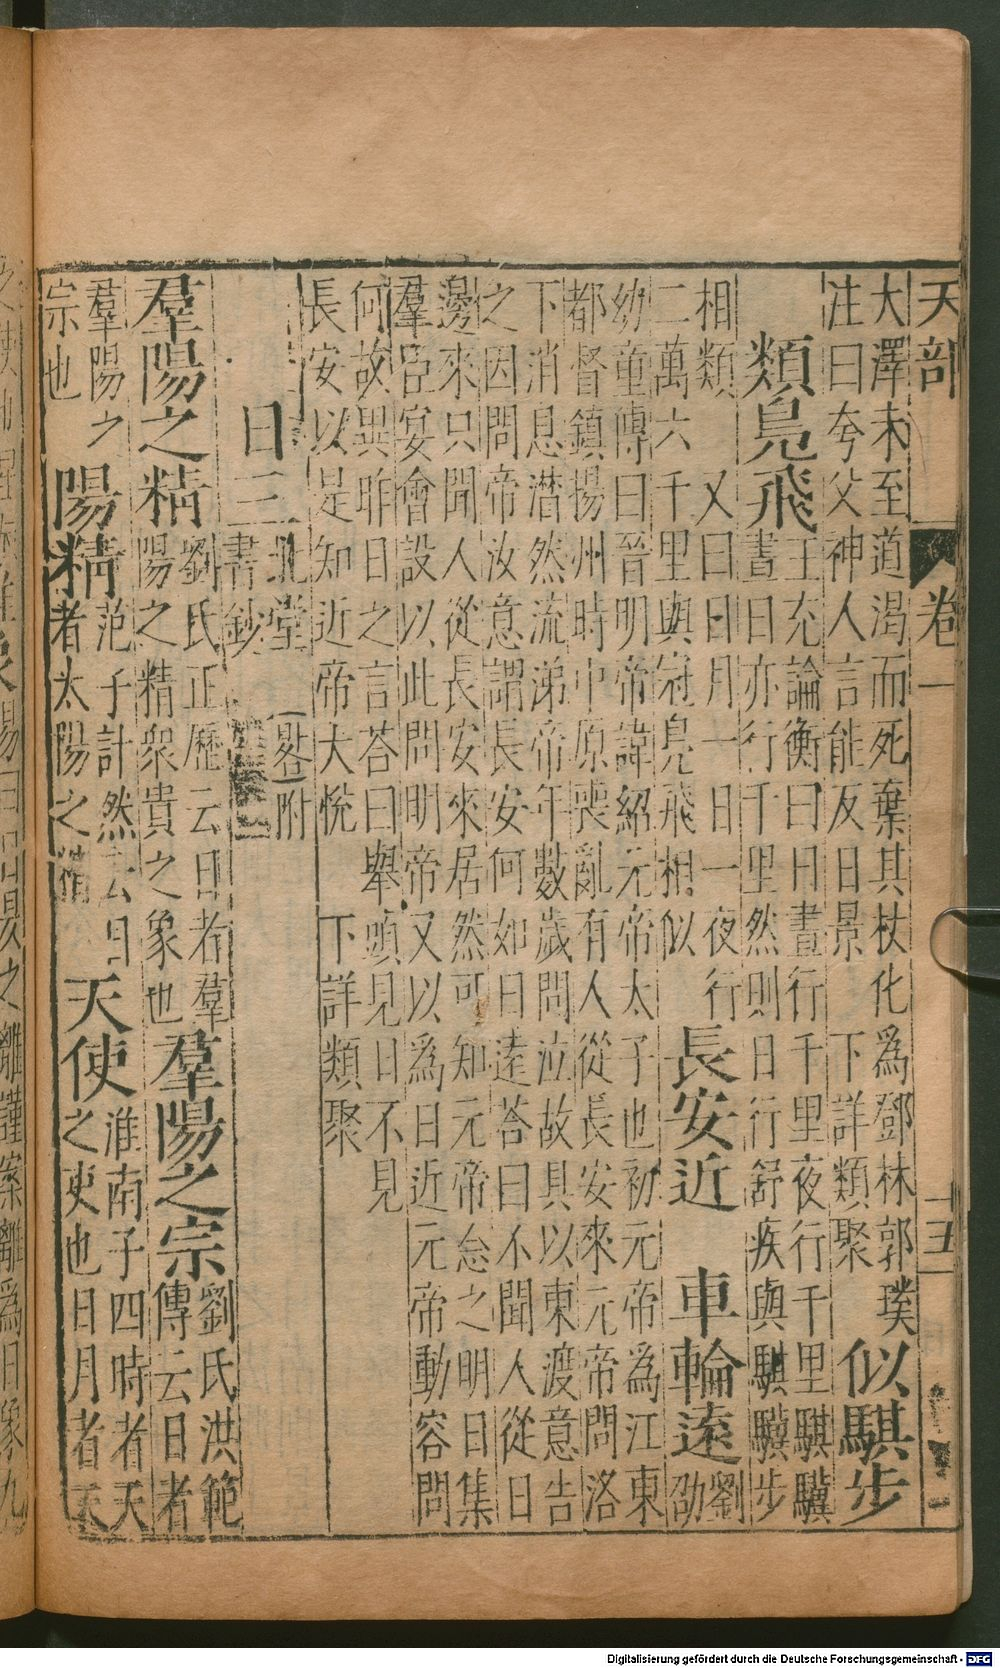 天部 卷一 十五
大澤未至道渴而死棄其杖化爲鄧林郭璞
注曰夸父神人言能反日景 下詳類聚
似騏步
類鳧飛
王充論衡曰日晝行千里夜行千里騏驥
晝日亦行千里然則日行舒疾與騏驥步
相類 又曰日月一日一夜行
二萬六千里與冠鳧飛相似
長安近 車輪遠
劉
劭
幼童傳曰晉明帝諱紹元帝太子也初元帝爲江東
都督鎮揚州時中原喪亂有人從長安來元帝問洛
下消息潜然流涕帝年數歲問泣故具以東渡意告
之因問帝汝意謂長安何如日遠荅曰不聞人從日
邊來只聞人從長安來居然可知元帝怠之明日集
羣臣宴會設以此問明帝又以爲日近元帝動容問
何故異昨日之言荅曰舉頭見日不見
長安以是知近帝大悅 下詳類聚
日三
北堂 晷附
書鈔
羣陽之精
劉氏正歷云日者羣
陽之精衆貴之象也
羣陽之宗
劉氏洪範
傳云日者
羣陽之
宗也
陽精
范子計然云日
者太陽之精
天使
淮南子四時者天
之吏也日月者天
之離謹案離爲日象九
Digitalisierung gefördert durch die Deutsche Forschungsgemeinschaft - DFG